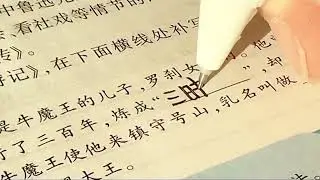 中鲁迅
看社戏等情节的
在下面横线处补写
传》。
记》,
是牛魔王的儿子,罗刹女
他
行了三百年,炼成“三昧”,却
牛魔王使他来镇守号山,乳名叫做
大王。